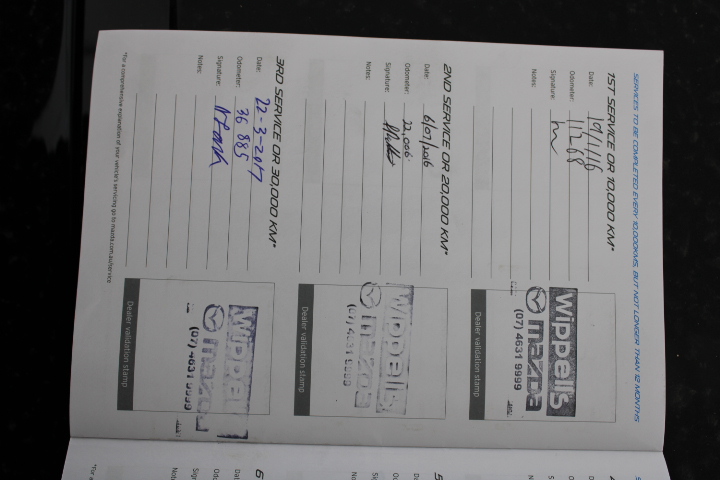 SERVICES TO BE COMPLETED EVERY 10,000KMS, BUT NOT LONGER THAN 12 MONTHS
1ST SERVICE OR 10,000 KM*
Date: 19/1/16
Odometer: 11268
Signature:
Notes:
Wippells
mazda
(07) 4631 9999
Dealer validation stamp
2ND SERVICE OR 20,000 KM*
Date: 6/07/2016
Odometer: 22,006
Signature:
Notes:
Wippells
mazda
(07) 4631 9999
Dealer validation stamp
3RD SERVICE OR 30,000 KM*
Date: 22-3-2017
Odometer: 36 885
Signature:
Notes:
Wippell
mazda
(07) 4631 9999
Dealer validation stamp
*For a comprehensive explanation of your vehicle's servicing go to mazda.com.au/service